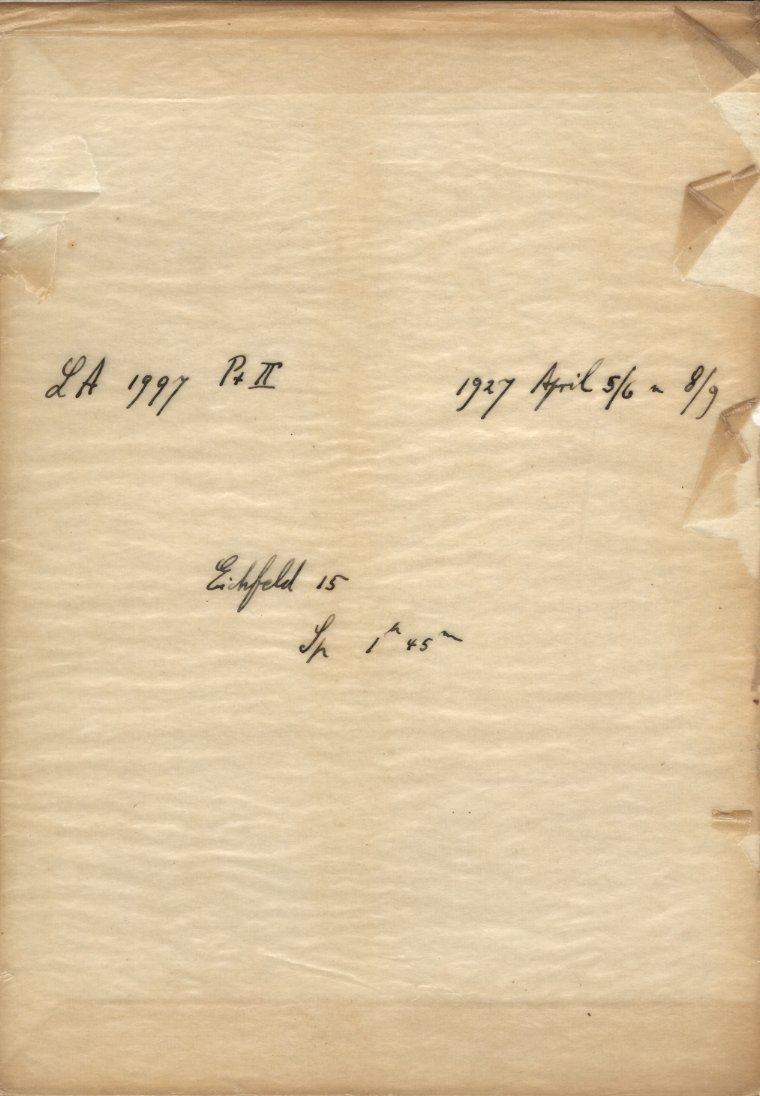 LA 1997 Pt II 1927 April 5/6 u 8/9
Eichfeld 15
Sp 1h 45m